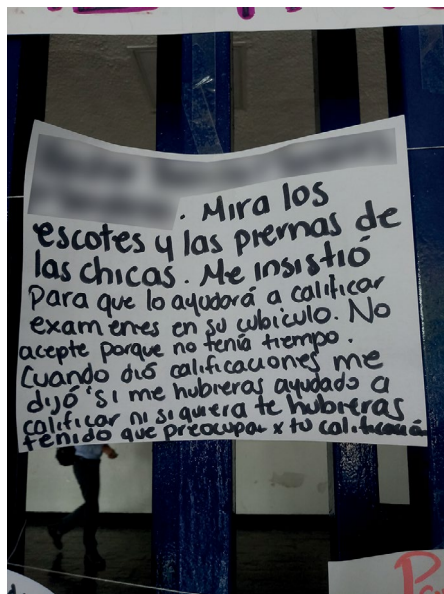 . Mira los
escotes y las piernas de
las chicas. Me insistió
para que lo ayudará a calificar
examenes en su cubiculo. No
acepte porque no tenía tiempo.
Cuando dió calificaciones me
dijó "si me hubieras ayudado a
calificar ni siquiera te hubieras
tenido que preocupar x tu calificación